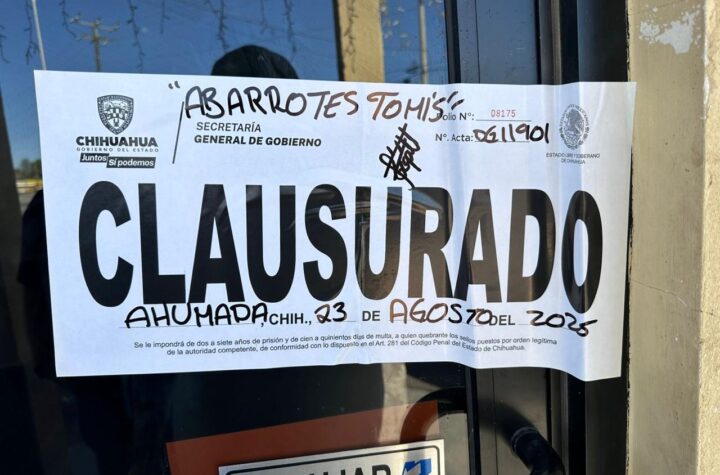 "ABARROTES TOMI'S"
CHIHUAHUA
GOBIERNO DEL ESTADO
Juntos Sí podemos
SECRETARÍA
GENERAL DE GOBIERNO
Folio N°: 08175
N°. Acta: DG11901
ESTADO LIBRE Y SOBERANO
DE CHIHUAHUA
CLAUSURADO
AHUMADA, CHIH., 23 DE AGOSTO DEL 2025
Se le impondrá de dos a siete años de prisión y de cien a quinientos días de multa, a quien quebrante los sellos puestos por orden legítima
de la autoridad competente, de conformidad con lo dispuesto en el Art. 281 del Código Penal del Estado de Chihuahua.